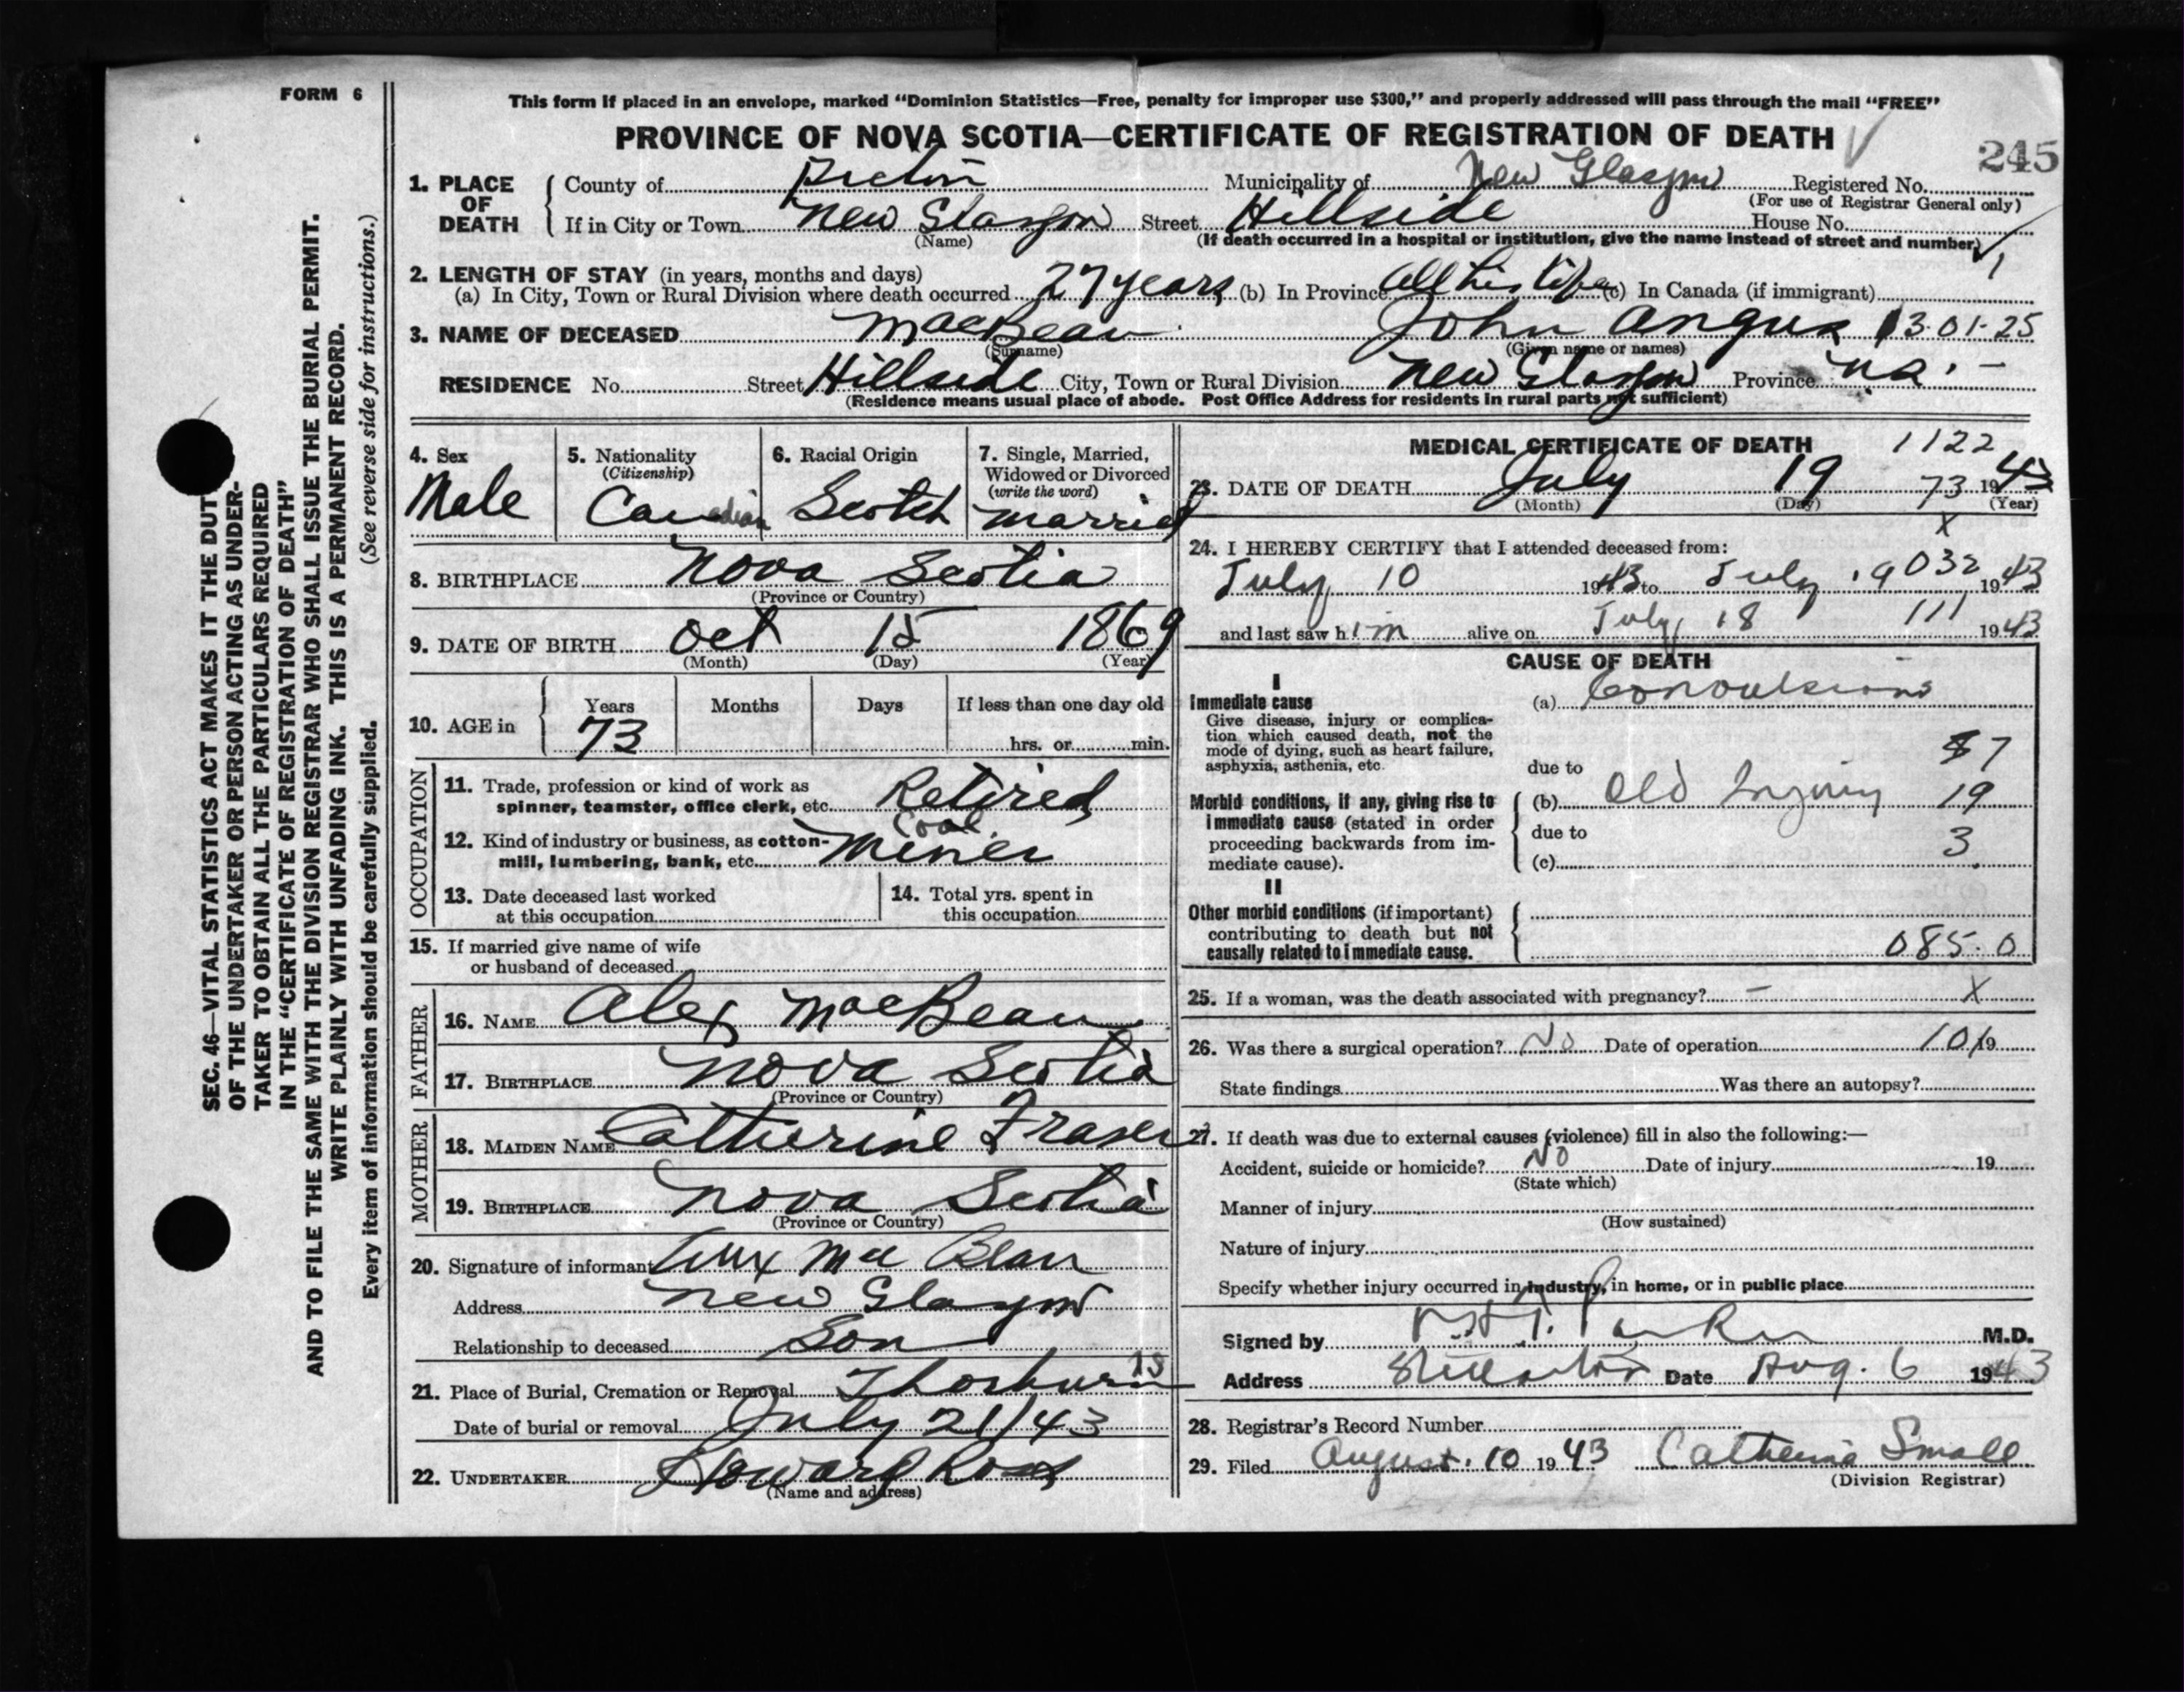 FORM 6
This form if placed in an envelope, marked “Dominion Statistics—Free, penalty for improper use $300,” and properly addressed will pass through the mail “FREE”
PROVINCE OF NOVA SCOTIA—CERTIFICATE OF REGISTRATION OF DEATH
245
1. PLACE OF DEATH
County of Pictou Municipality of New Glasgow Registered No.
(For use of Registrar General only)
If in City or Town New Glasgow Street Hillside House No.
(Name) (If death occurred in a hospital or institution, give the name instead of street and number)
2. LENGTH OF STAY (in years, months and days)
(a) In City, Town or Rural Division where death occurred 27 years (b) In Province All his life (c) In Canada (if immigrant)
3. NAME OF DECEASED MacBean John Angus 13-01-25
(Surname) (Given name or names)
RESIDENCE No. Street Hillside City, Town or Rural Division New Glasgow Province
(Residence means usual place of abode. Post Office Address for residents in rural parts not sufficient)
4. Sex
Male
5. Nationality
(Citizenship)
Canadian
6. Racial Origin
Scotch
7. Single, Married,
Widowed or Divorced
(write the word)
Married
8. BIRTHPLACE Nova Scotia
(Province or Country)
9. DATE OF BIRTH Oct 15 1869
(Month) (Day) (Year)
10. AGE in
Years Months Days If less than one day old
73 hrs. or min.
OCCUPATION
11. Trade, profession or kind of work as
spinner, teamster, office clerk, etc. Retired
12. Kind of industry or business, as cotton-
mill, lumbering, bank, etc. Coal Miner
13. Date deceased last worked
at this occupation
14. Total yrs. spent in
this occupation
15. If married give name of wife
or husband of deceased
FATHER
16. NAME Alex MacBean
17. BIRTHPLACE Nova Scotia
(Province or Country)
MOTHER
18. MAIDEN NAME Catherine Fraser
19. BIRTHPLACE Nova Scotia
(Province or Country)
20. Signature of informant Alex MacBean
Address New Glasgow
Relationship to deceased Son
21. Place of Burial, Cremation or Removal Thorburn 15
Date of burial or removal July 21/43
22. UNDERTAKER Howard Ross
(Name and address)
MEDICAL CERTIFICATE OF DEATH 1122
23. DATE OF DEATH July 19 73 1943
(Month) (Day) (Year)
x
24. I HEREBY CERTIFY that I attended deceased from:
July 10 1943 to July 19 032 1943
and last saw him alive on July 18 111 1943
CAUSE OF DEATH
I
Immediate cause
Give disease, injury or complica-
tion which caused death, not the
mode of dying, such as heart failure,
asphyxia, asthenia, etc.
(a) Convulsions
due to 7
Morbid conditions, if any, giving rise to
immediate cause (stated in order
proceeding backwards from im-
mediate cause).
(b) Old Injury 19
due to
(c) 3
II
Other morbid conditions (if important)
contributing to death but not
causally related to immediate cause.
085.0
25. If a woman, was the death associated with pregnancy? — X
26. Was there a surgical operation? No Date of operation 10 19
State findings Was there an autopsy?
27. If death was due to external causes (violence) fill in also the following:—
Accident, suicide or homicide? No Date of injury 19
(State which)
Manner of injury
(How sustained)
Nature of injury
Specify whether injury occurred in industry, in home, or in public place
Signed by Parker M.D.
Address Stellarton Date Aug. 6 1943
28. Registrar's Record Number
29. Filed August 10 1943 Catherine Small
(Division Registrar)
SEC. 46—VITAL STATISTICS ACT MAKES IT THE DUTY
OF THE UNDERTAKER OR PERSON ACTING AS UNDER-
TAKER TO OBTAIN ALL THE PARTICULARS REQUIRED
IN THE “CERTIFICATE OF REGISTRATION OF DEATH”
AND TO FILE THE SAME WITH THE DIVISION REGISTRAR WHO SHALL ISSUE THE BURIAL PERMIT.
WRITE PLAINLY WITH UNFADING INK. THIS IS A PERMANENT RECORD.
Every item of information should be carefully supplied. (See reverse side for instructions.)